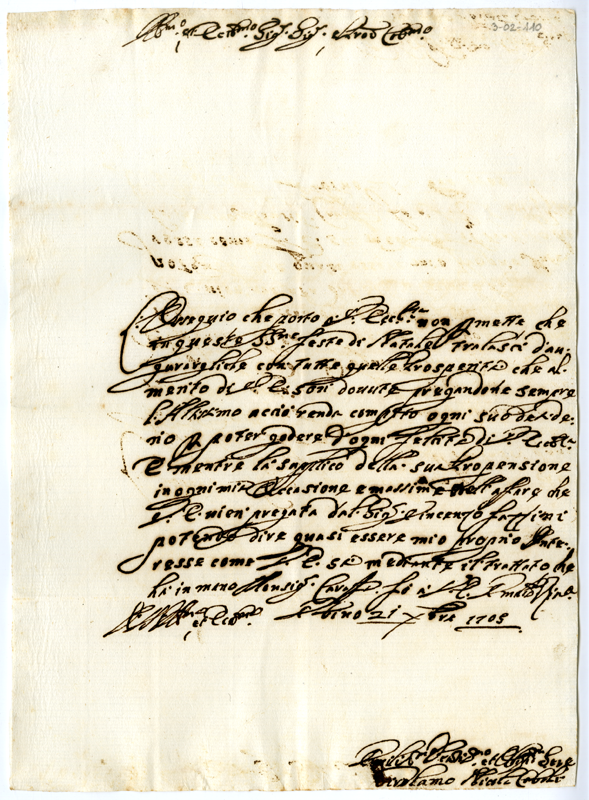 Ill.mo et Ecc.mo Sig.r Sig.r e Pron Col.mo
3-02-110
L'Ossequio che porto a V. Ecc.za non permette che
in queste SS.me feste di Natale tralasci d'au-
gurargliele con tutte quelle prosperità che al
merito di V. E. son dovute pregandone sempre
l'Altissimo acciò renda compito ogni suo deside-
rio p poter godere d'ogni felicità di V. Ecc.za
E mentre la suplico della sua propensione
in ogni mia Occasione e massime nell'affare che
V. E. vien pregata dal Sig.r Vincenzo
potendo dire quasi essere mio proprio Inte-
resse come V. E. sà mediante il trattato che
hà in mano Monsig.r fò a V. E.
21 Xbre 1705
et Ecc.mo
Girolamo